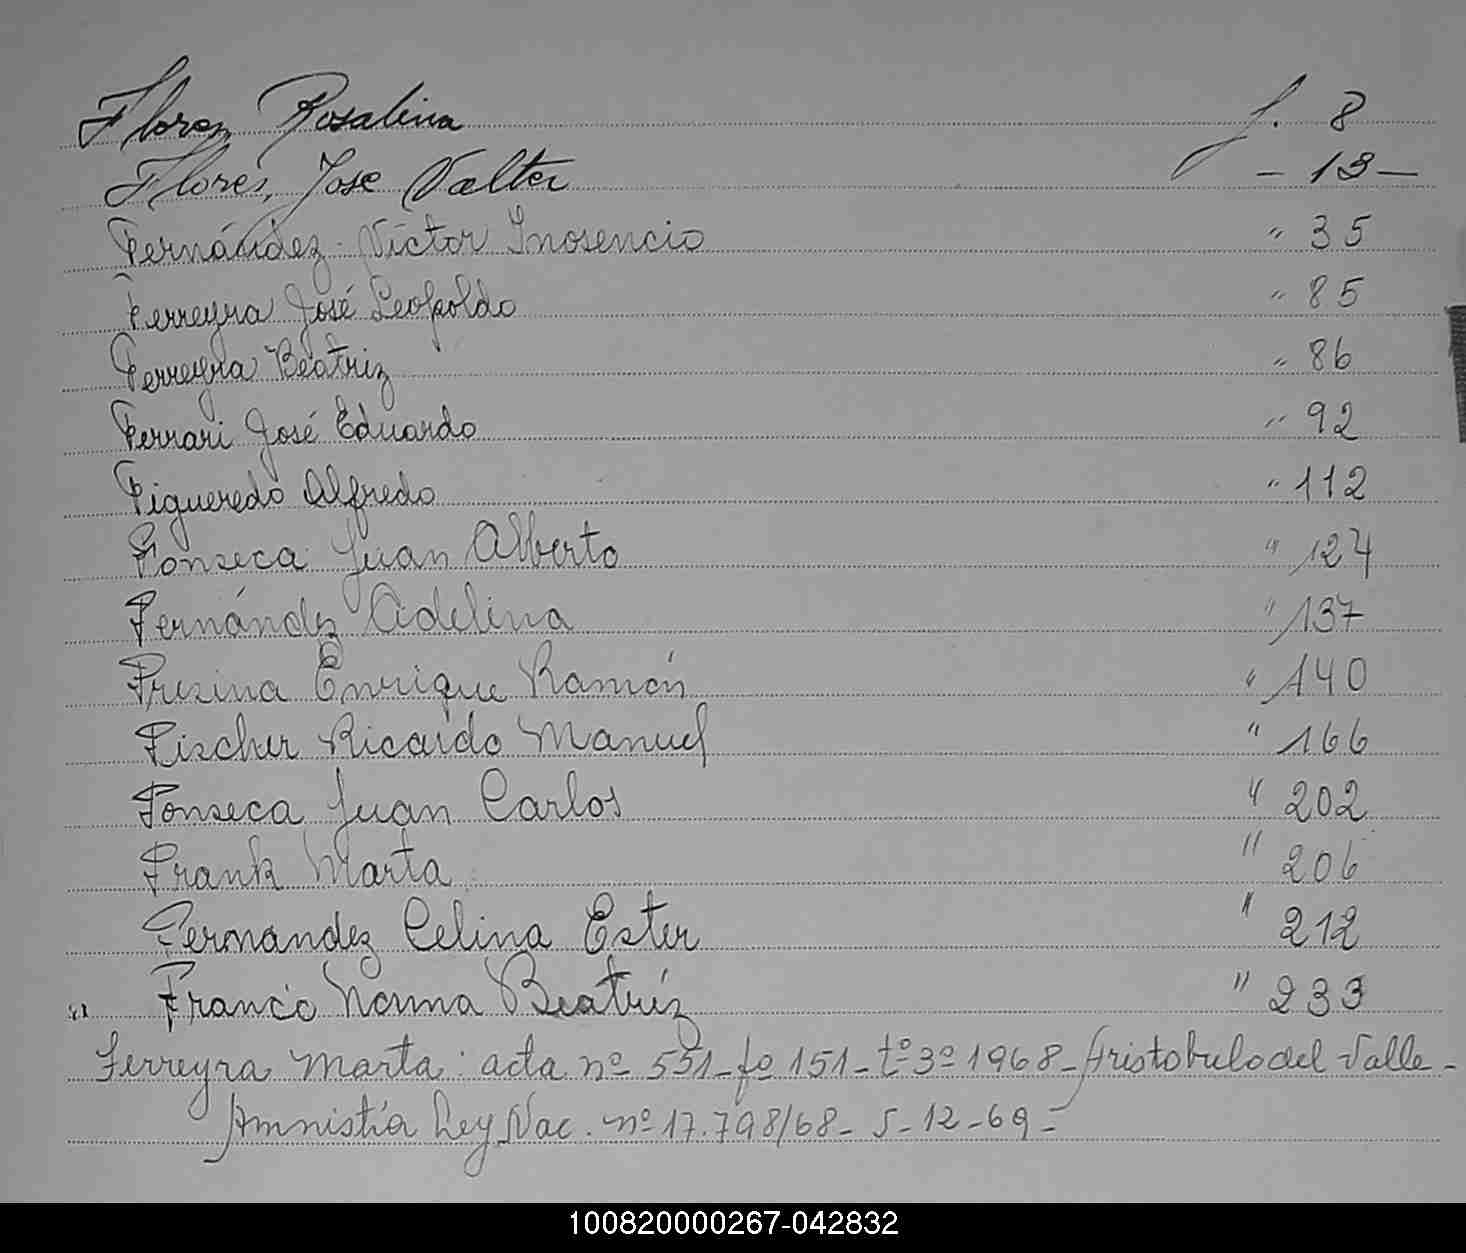 Florez Rosalina f. 8
Flores, Jose Valter - 13 -
Fernández Víctor Inosencio " 35
Ferreyra José Leopoldo " 85
Ferreyra Beatriz " 86
Ferrari José Eduardo " 92
Figueredo Alfredo " 112
Fonseca Juan Alberto " 124
Fernández Adelina " 137
Frezina Enrique Ramón " 140
Fischer Ricardo Manuel " 166
Fonseca Juan Carlos " 202
Frank Marta " 206
Fernandez Celina Ester " 212
" Franco Norma Beatríz " 233
Ferreyra Marta: acta nº 551- fº 151- tº 3º 1968- Aristobulo del Valle -
Amnistía Ley Nac. nº 17.798/68- 5-12-69 -
100820000267-042832